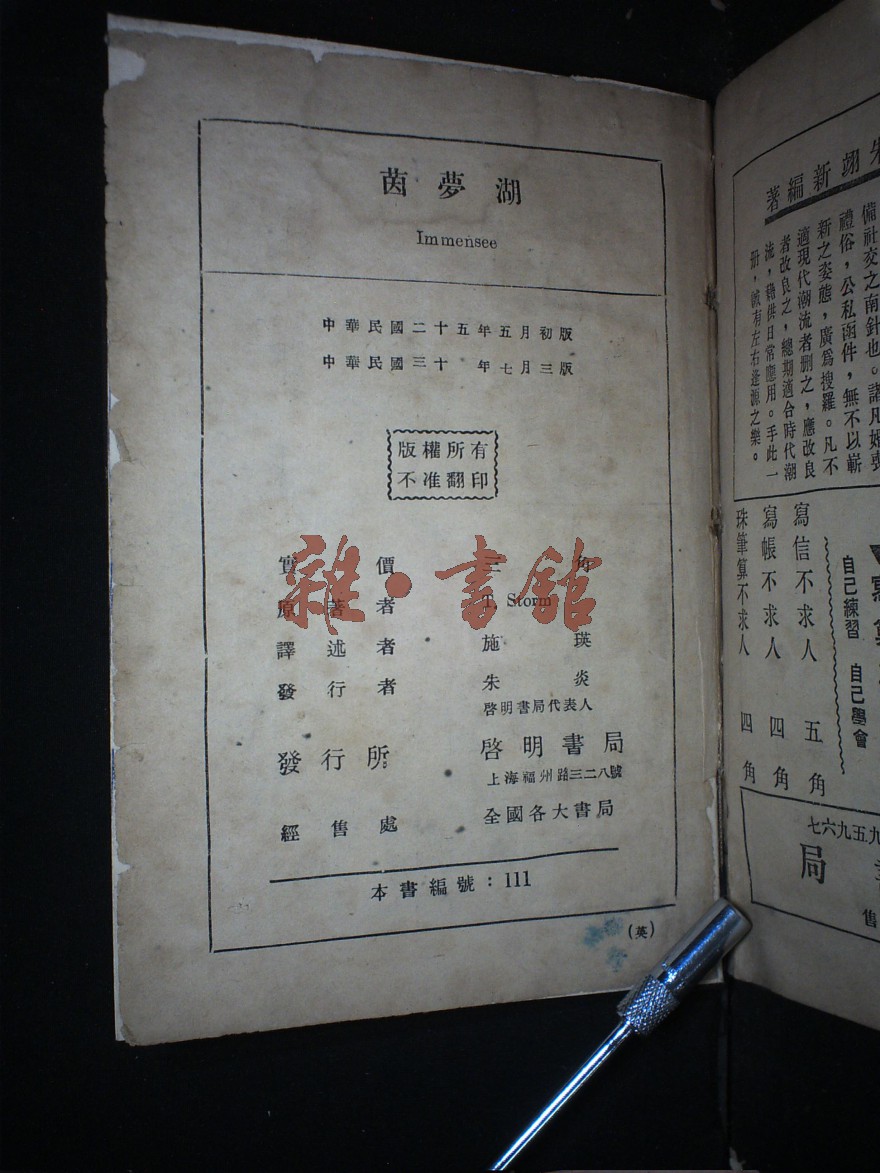 茵夢湖
Immensee
中華民國二十五年五月初版
中華民國三十 年七月三版
版權所有
不准翻印
實價 三角
原著者 T. Storm
譯述者 施瑛
發行者 朱炎
啓明書局代表人
發行所 啓明書局
上海福州路三二八號
經售處 全國各大書局
本書編號：111
(英)
雜·書館
朱翊新編著
備社交之南針也。諸凡婚喪
禮俗，公私函件，無不以嶄
新之姿態，廣爲搜羅。凡不
適現代潮流者删之，應改良
者改良之，總期適合時代潮
流，藉供日常應用。手此一
册，誠有左右逢源之樂。
自己練習 自己學會
寫信不求人 五角
寫帳不求人 四角
珠筆算不求人 四角
九五九六七
局
售